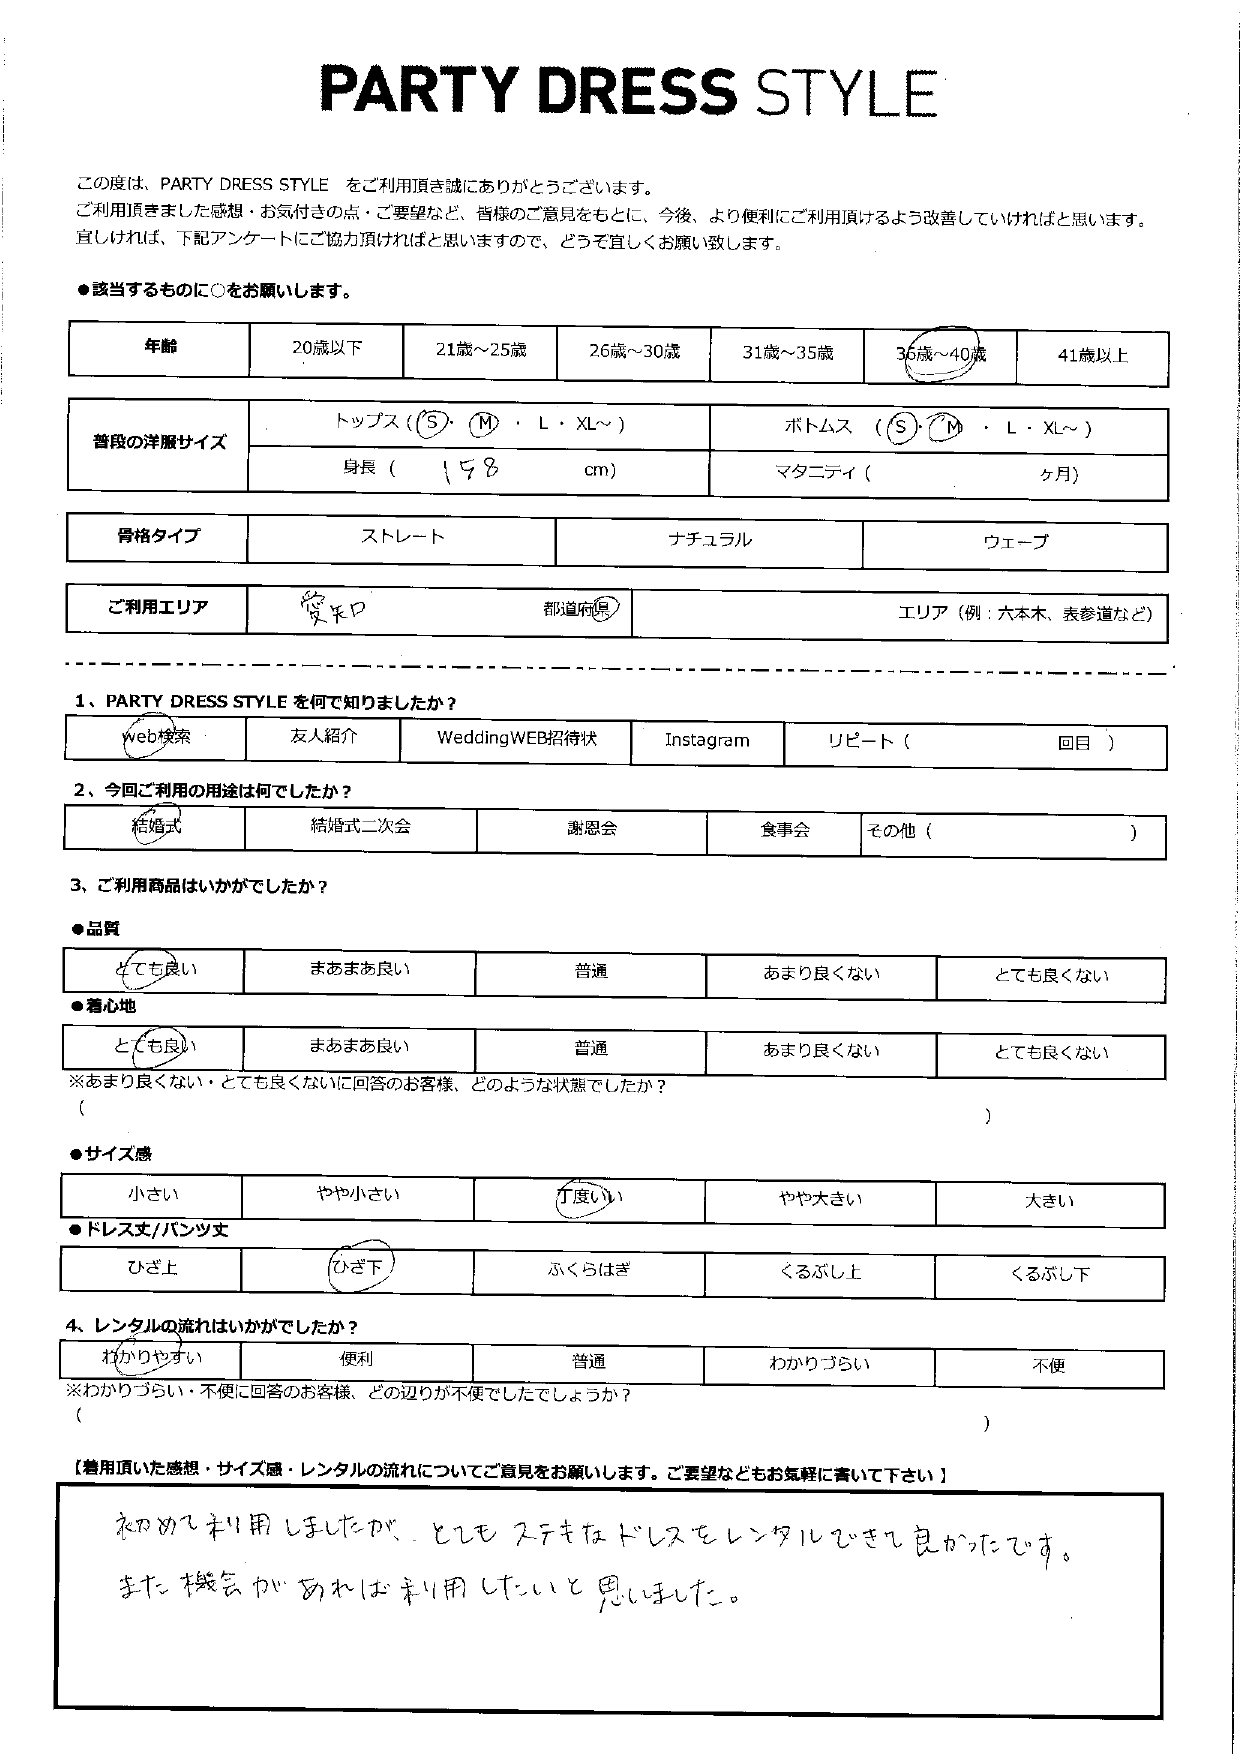 PARTY DRESS STYLE
この度は、PARTY DRESS STYLE をご利用頂き誠にありがとうございます。
ご利用頂きました感想・お気付きの点・ご要望など、皆様のご意見をもとに、今後、より便利にご利用頂けるよう改善していければと思います。
宜しければ、下記アンケートにご協力頂ければと思いますので、どうぞ宜しくお願い致します。
●該当するものに○をお願いします。
年齢 20歳以下 21歳～25歳 26歳～30歳 31歳～35歳 36歳～40歳 41歳以上
普段の洋服サイズ
トップス (S・M・L・XL～) ボトムス (S・M・L・XL～)
身長 ( 158 cm) マタニティ ( ヶ月)
骨格タイプ ストレート ナチュラル ウェーブ
ご利用エリア 愛知 都道府県 エリア（例：六本木、表参道など）
1、PARTY DRESS STYLE を何で知りましたか？
web検索 友人紹介 WeddingWEB招待状 Instagram リピート ( 回目 )
2、今回ご利用の用途は何でしたか？
結婚式 結婚式二次会 謝恩会 食事会 その他 ( )
3、ご利用商品はいかがでしたか？
●品質
とても良い まあまあ良い 普通 あまり良くない とても良くない
●着心地
とても良い まあまあ良い 普通 あまり良くない とても良くない
※あまり良くない・とても良くないに回答のお客様、どのような状態でしたか？
( )
●サイズ感
小さい やや小さい 丁度いい やや大きい 大きい
●ドレス丈/パンツ丈
ひざ上 ひざ下 ふくらはぎ くるぶし上 くるぶし下
4、レンタルの流れはいかがでしたか？
わかりやすい 便利 普通 わかりづらい 不便
※わかりづらい・不便に回答のお客様、どの辺りが不便でしたでしょうか？
( )
【着用頂いた感想・サイズ感・レンタルの流れについてご意見をお願いします。ご要望などもお気軽に書いて下さい】
初めて利用しましたが、とても ステキな ドレスを レンタルできて 良かったです。
また 機会が あれば 利用したいと 思いました。